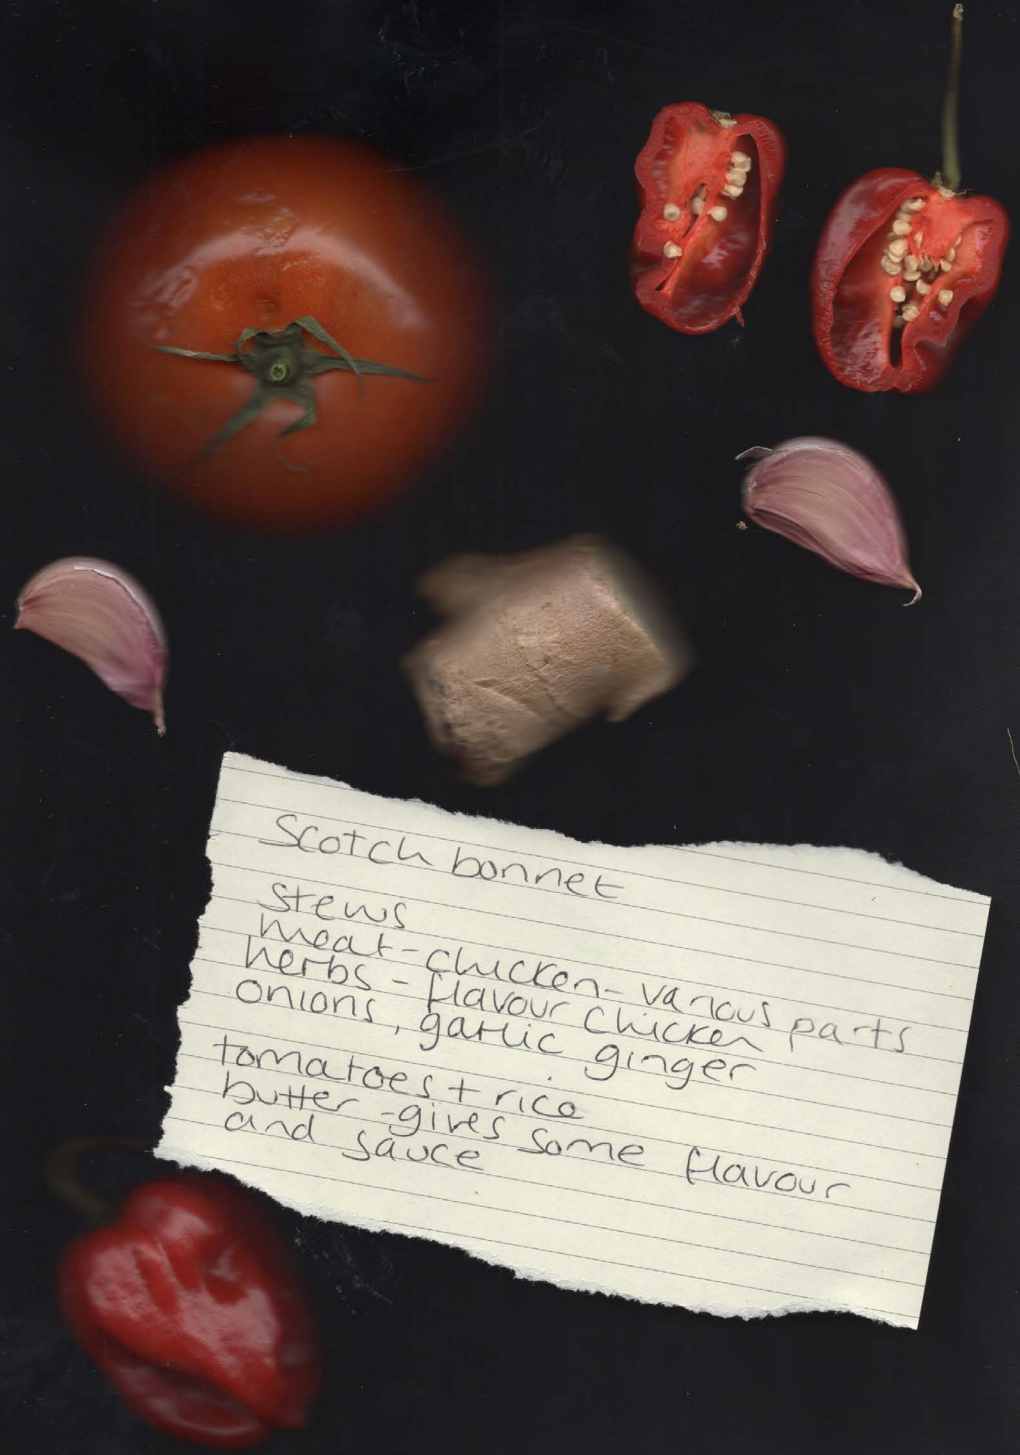 Scotch bonnet
stews
meat - chicken - various parts
herbs - flavour chicken
onions, garlic ginger
tomatoes + rice
butter - gives some flavour
and sauce